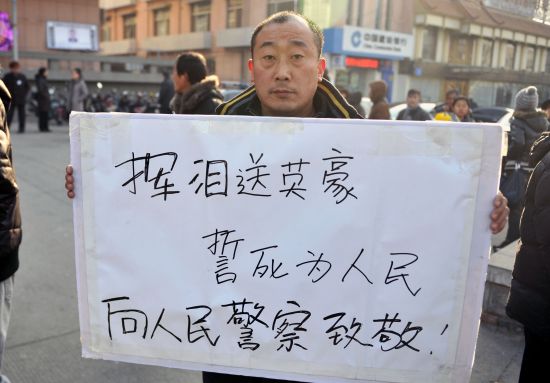 挥泪送英豪
誓死为人民
向人民警察致敬!
中国建设银行
China Construction Bank